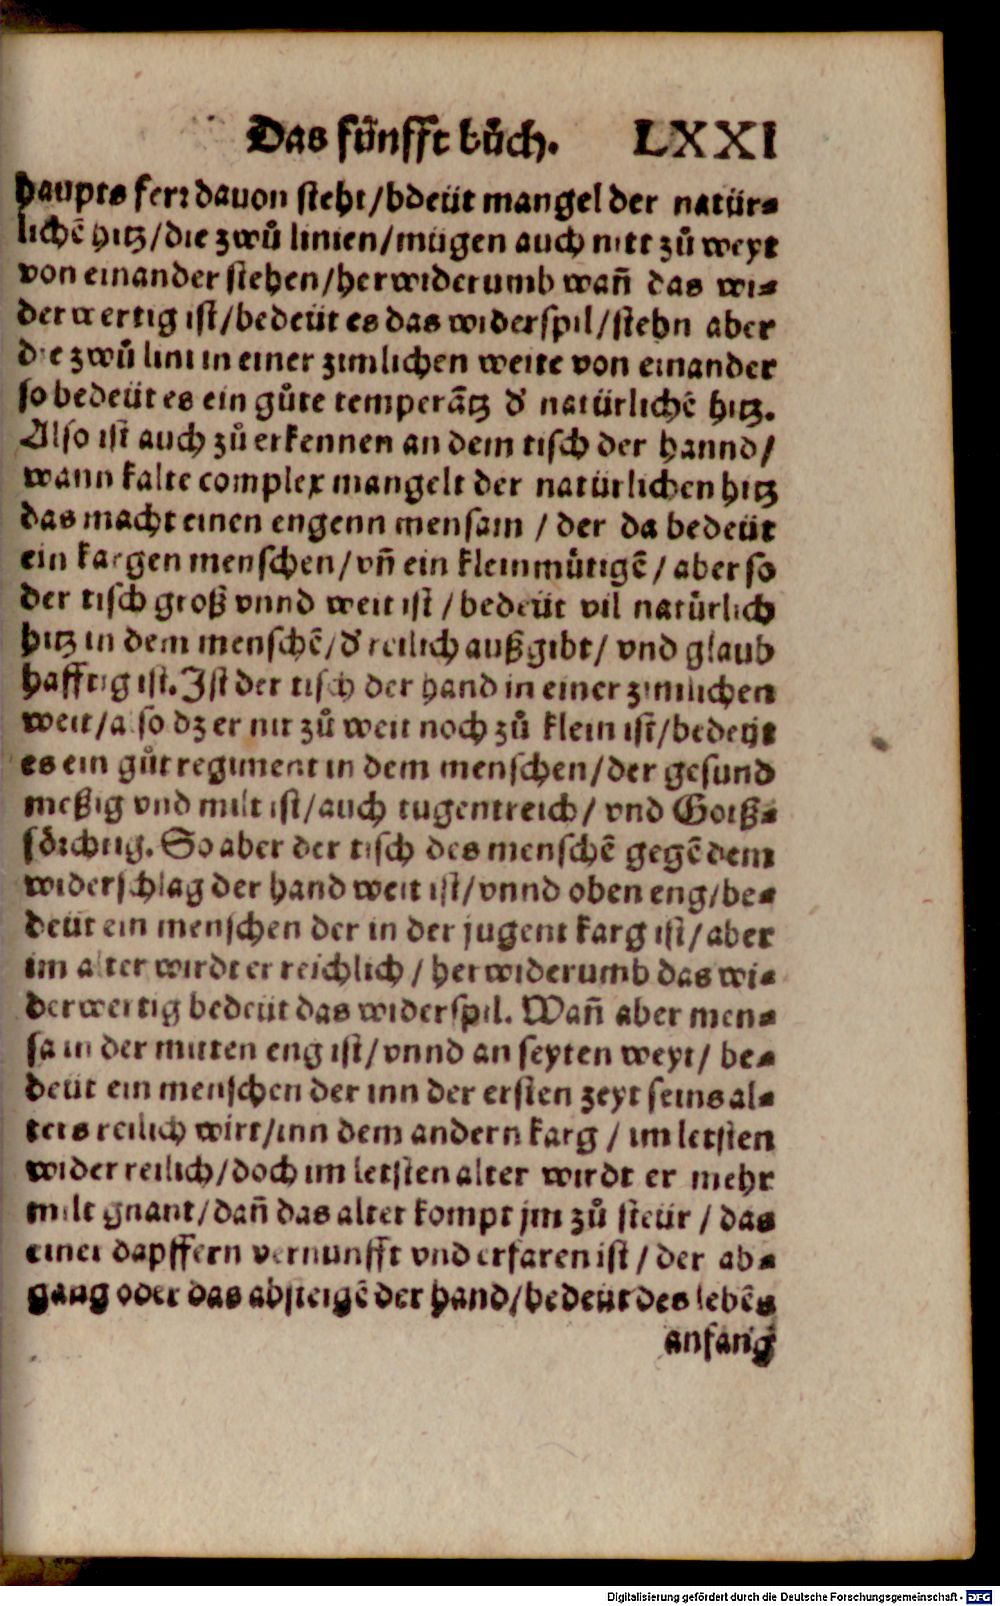 Das fünfft bůch. LXXI
haupts ferꝛ dauon steht/bdeüt mangel der natür-
lichē hitz/die zwů linien/mügen auch nitt zů weyt
von einander stehen/herwiderumb wañ das wi-
derwertig ist/bedeüt es das widerspil/stehn aber
die zwů lini in einer zimlichen weite von einander
so bedeüt es ein gůte temperãtz d' natürlichē hitz.
Also ist auch zů erkennen an dem tisch der hannd/
wann kalte complex mangelt der natürlichen hitz
das macht einen engenn mensam / der da bedeüt
ein kargen menschen/vñ ein kleinmütigē / aber so
der tisch groß vnnd weit ist / bedeüt vil natürlich
hitz in dem menschē/d' reilich außgibt/ vnd glaub
hafftig ist. Ist der tisch der hand in einer zimlichen
weit/also dz er nit zů weit noch zů klein ist/bedeyt
es ein gůt regiment in dem menschen/der gesund
meßig vnd milt ist/auch tugentreich/ vnd Gotß-
föꝛchtig. So aber der tisch des menschē gegē dem
widerschlag der hand weit ist/vnnd oben eng/be-
deüt ein menschen der in der jugent karg ist/aber
im alter wirdt er reichlich / herwiderumb das wi-
derwertig bedeüt das widerspil. Wañ aber men-
sa in der mitten eng ist/vnnd an seyten weyt/ be-
deüt ein menschen der inn der ersten zeyt seins al-
ters reilich wirt/inn dem andern karg / im letsten
wider reilich/doch im letsten alter wirdt er mehr
milt gnant/dañ das alter kompt jm zů steür / das
einer dapffern vernunfft vnd erfaren ist / der ab-
gang oder das absteigē der hand/bedeüt des lebēs
anfang
Digitalisierung gefördert durch die Deutsche Forschungsgemeinschaft - DFG